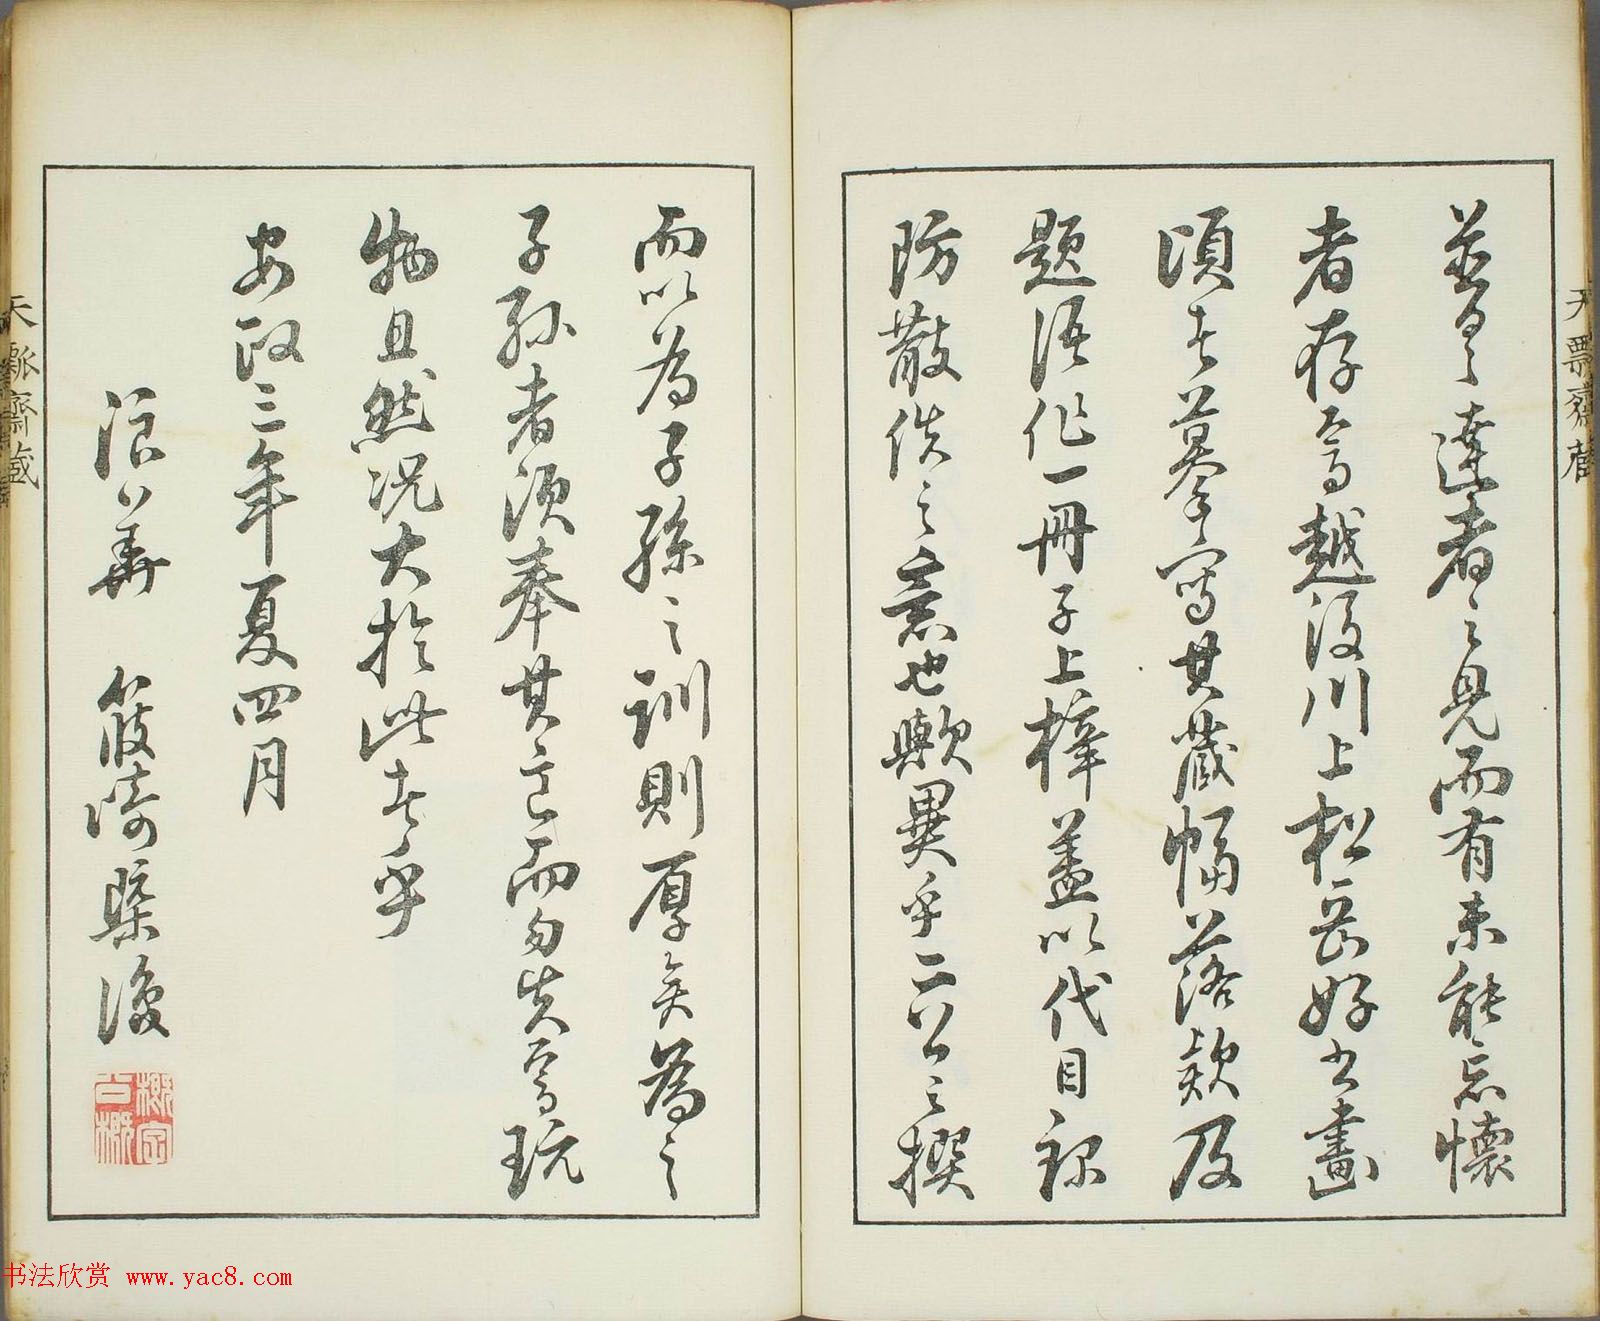 達者之見而有未能忘懷
者存焉越後川上松岳好書畫
頃者摹寫其藏幅落款及
題語作一冊子上梓蓋以代目錄
防散佚之意也歟異乎二公之撰
而以為子孫之訓則厚矣為之
子孫者須奉其意而勿失焉玩
物且然況大於此者乎
安政三年夏四月
浪華 筱崎槩後
天瓢齋藏
天瓢齋藏
书法欣赏 www.yac8.com